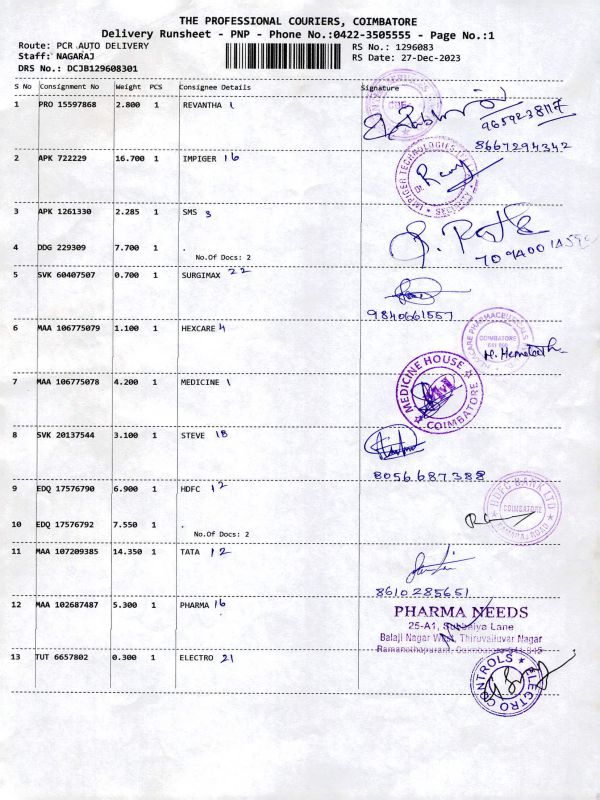 THE PROFESSIONAL COURIERS, COIMBATORE
Delivery Runsheet - PNP - Phone No.:0422-3505555 - Page No.:1
Route: PCR AUTO DELIVERY RS No.: 1296083
Staff: NAGARAJ RS Date: 27-Dec-2023
DRS No.: DCJB129608301
S No Consignment No Weight PCS Consignee Details Signature
1 PRO 15597868 2.800 1 REVANTHA 1
9659238117
8667294342
2 APK 722229 16.700 1 IMPIGER 16
IMPIGER TECHNOLOGIES
SECURITY
3 APK 1261330 2.285 1 SMS 3
4 DDG 229309 7.700 1 .
No.Of Docs: 2
5 SVK 60407507 0.700 1 SURGIMAX 22
9840661557
6 MAA 106775079 1.100 1 HEXCARE 4
PHARMACEUTICALS
COIMBATORE
7 MAA 106775078 4.200 1 MEDICINE 1
MEDICINE HOUSE
COIMBATORE
8 SVK 20137544 3.100 1 STEVE 18
8056687388
9 EDQ 17576790 6.900 1 HDFC 12
HDFC BANK LTD
COIMBATORE
10 EDQ 17576792 7.550 1 .
No.Of Docs: 2
11 MAA 107209385 14.350 1 TATA 12
8610285651
12 MAA 102687487 5.300 1 PHARMA 16
PHARMA NEEDS
25-A1, Subbaiya Lane
Balaji Nagar West, Thiruvalluvar Nagar
Ramanathapuram, Coimbatore 641 045
13 TUT 6657802 0.300 1 ELECTRO 21
ELECTRO CONTROLS